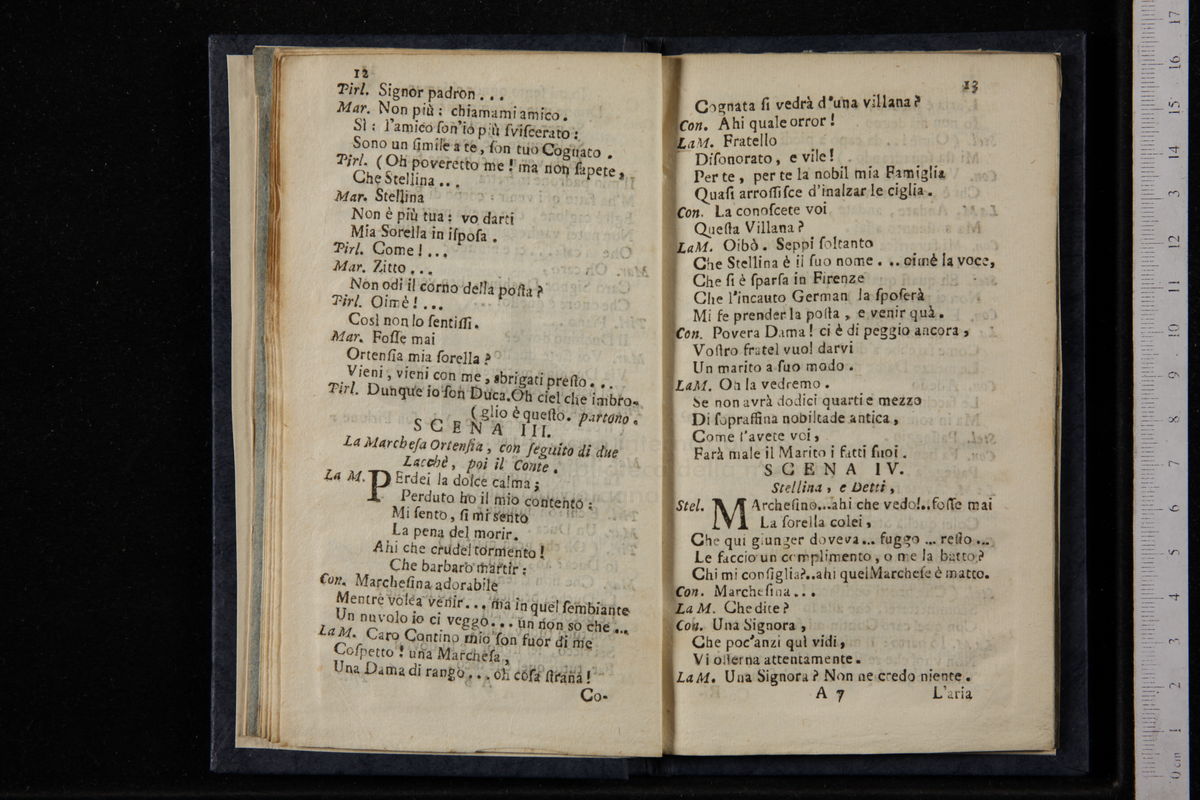 12
Tirl. Signor padron . . .
Mar. Non più : chiamami amico .
Sì : l'amico ſon'io più ſviſcerato :
Sono un ſimile a te, ſon tuo Cognato .
Tirl. ( Oh poveretto me ! ma non ſapete,
Che Stellina . . .
Mar. Stellina
Non è più tua : vo darti
Mia Sorella in iſpoſa .
Tirl. Come ! . . .
Mar. Zitto . . .
Non odi il corno della poſta ?
Tirl. Oimè ! . . .
Così non lo ſentiſſi .
Mar. Foſſe mai
Ortenſia mia ſorella ?
Vieni, vieni con me, sbrigati preſto . . .
Tirl. Dunque io ſon Duca. Oh ciel che imbro-
( glio è queſto. partono .
SCENA III.
La Marcheſa Ortenſia, con ſeguito di due
Lacchè, poi il Conte .
La M. PErdei la dolce calma ;
Perduto ho il mio contento :
Mi ſento, ſi mi sento
La pena del morir.
Ahi che crudel tormento !
Che barbaro martir :
Con. Marcheſina adorabile
Mentre volea venir . . . ma in quel ſembiante
Un nuvolo io ci veggo . . . un non so che . . .
La M. Caro Contino mio ſon fuor di me
Coſpetto ! una Marcheſa,
Una Dama di rango . . . oh coſa ſtrana !
Co-
13
Cognata ſi vedrà d'una villana ?
Con. Ahi quale orror !
La M. Fratello
Diſonorato, e vile !
Per te, per te la nobil mia Famiglia
Quaſi arroſſiſce d'inalzar le ciglia .
Con. La conoſcete voi
Queſta Villana ?
La M. Oibò. Seppi ſoltanto
Che Stellina è il ſuo nome . . . oimè la voce,
Che ſi è ſparſa in Firenze
Che l'incauto German la ſpoſerà
Mi fe prender la poſta, e venir quà .
Con. Povera Dama ! ci è di peggio ancora,
Voſtro fratel vuol darvi
Un marito a ſuo modo .
La M. Oh la vedremo .
Se non avrà dodici quarti e mezzo
Di ſopraffina nobiltade antica,
Come l'avete voi,
Farà male il Marito i fatti ſuoi .
SCENA IV.
Stellina, e Detti,
Stel. MArcheſino...ahi che vedo!..foſſe mai
La ſorella colei,
Che qui giunger doveva ... fuggo ... reſto ...
Le faccio un complimento, o me la batto ?
Chi mi conſiglia?..ahi quel Marcheſe è matto.
Con. Marcheſina . . .
La M. Che dite ?
Con. Una Signora,
Che poc'anzi quì vidi,
Vi oſſerna attentamente .
La M. Una Signora ? Non ne credo niente .
A 7
L'aria
0 cm 1 2 3 4 5 6 7 8 9 10 11 12 13 14 15 16 17